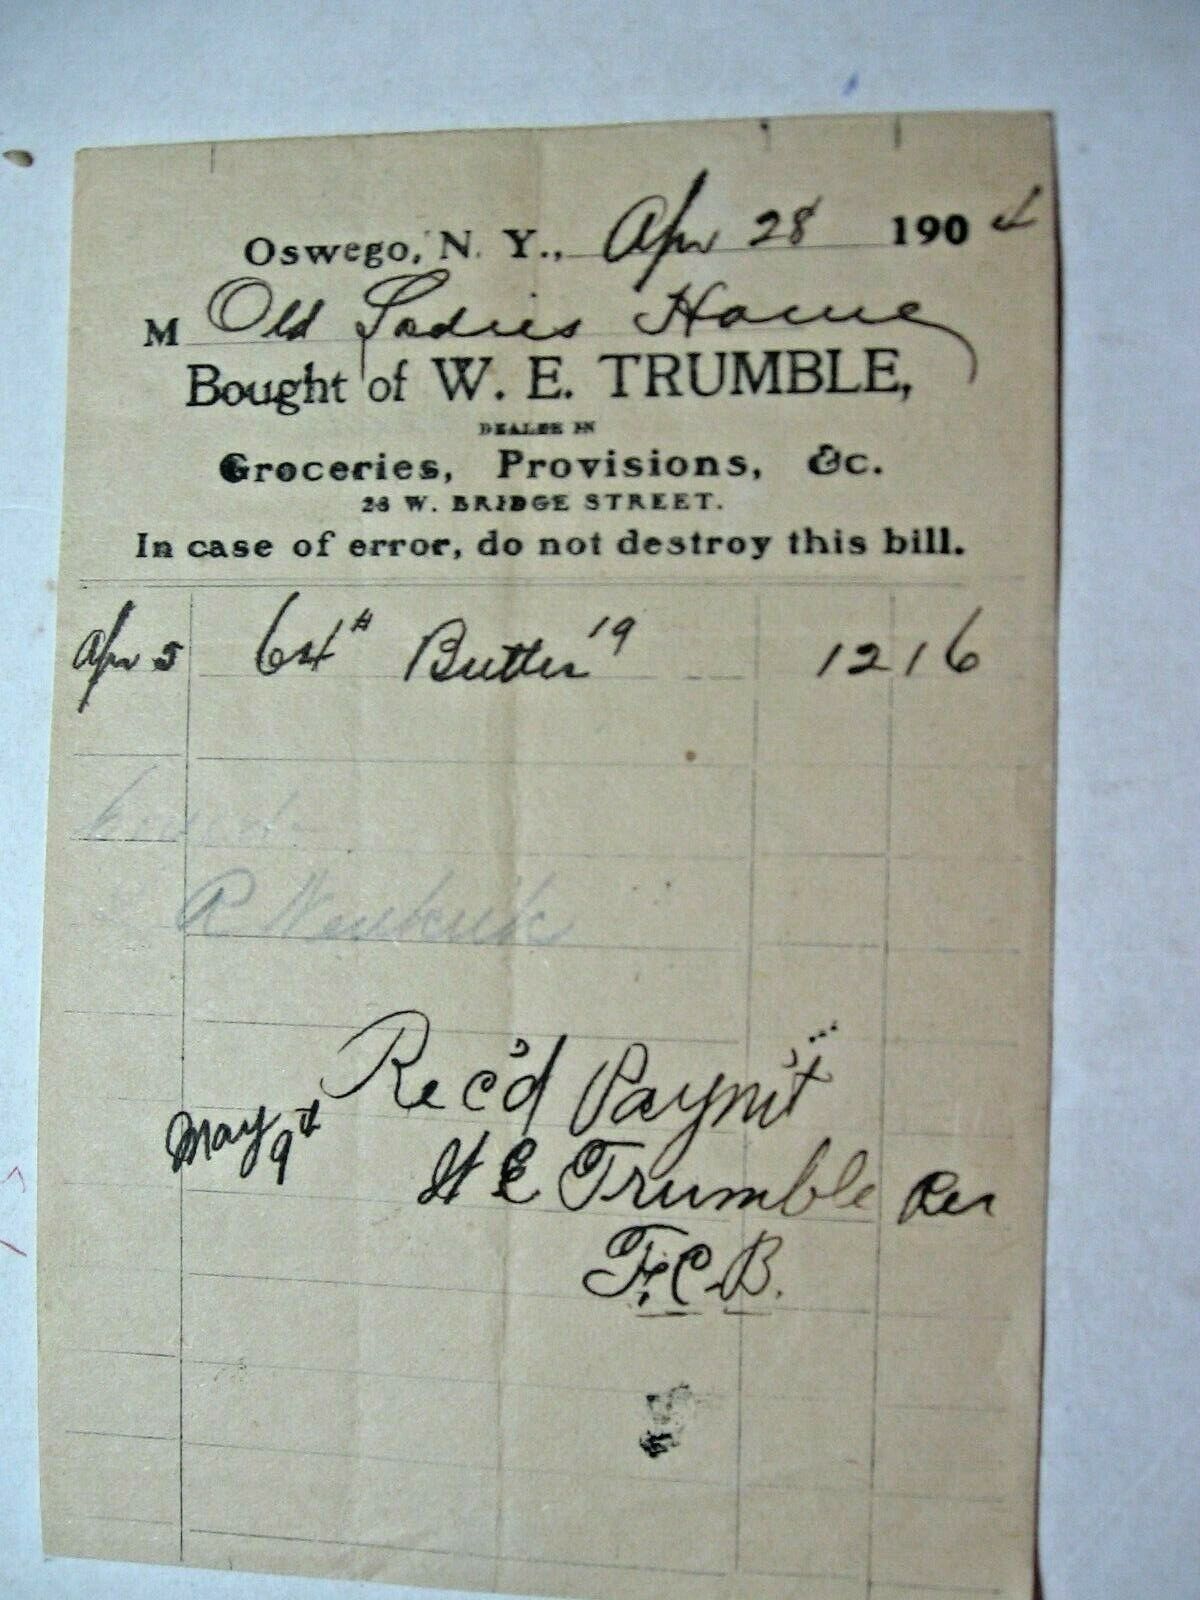 Oswego, N. Y., Apr 28 1904
M Old Ladies Home
Bought of W. E. TRUMBLE,
DEALER IN
Groceries, Provisions, &c.
26 W. BRIDGE STREET.
In case of error, do not destroy this bill.
Apr 5 64# Butter 19 12 16
R Newkirk
Rec'd Paym't
May 9th
W E Trumble Per
F. C. B.